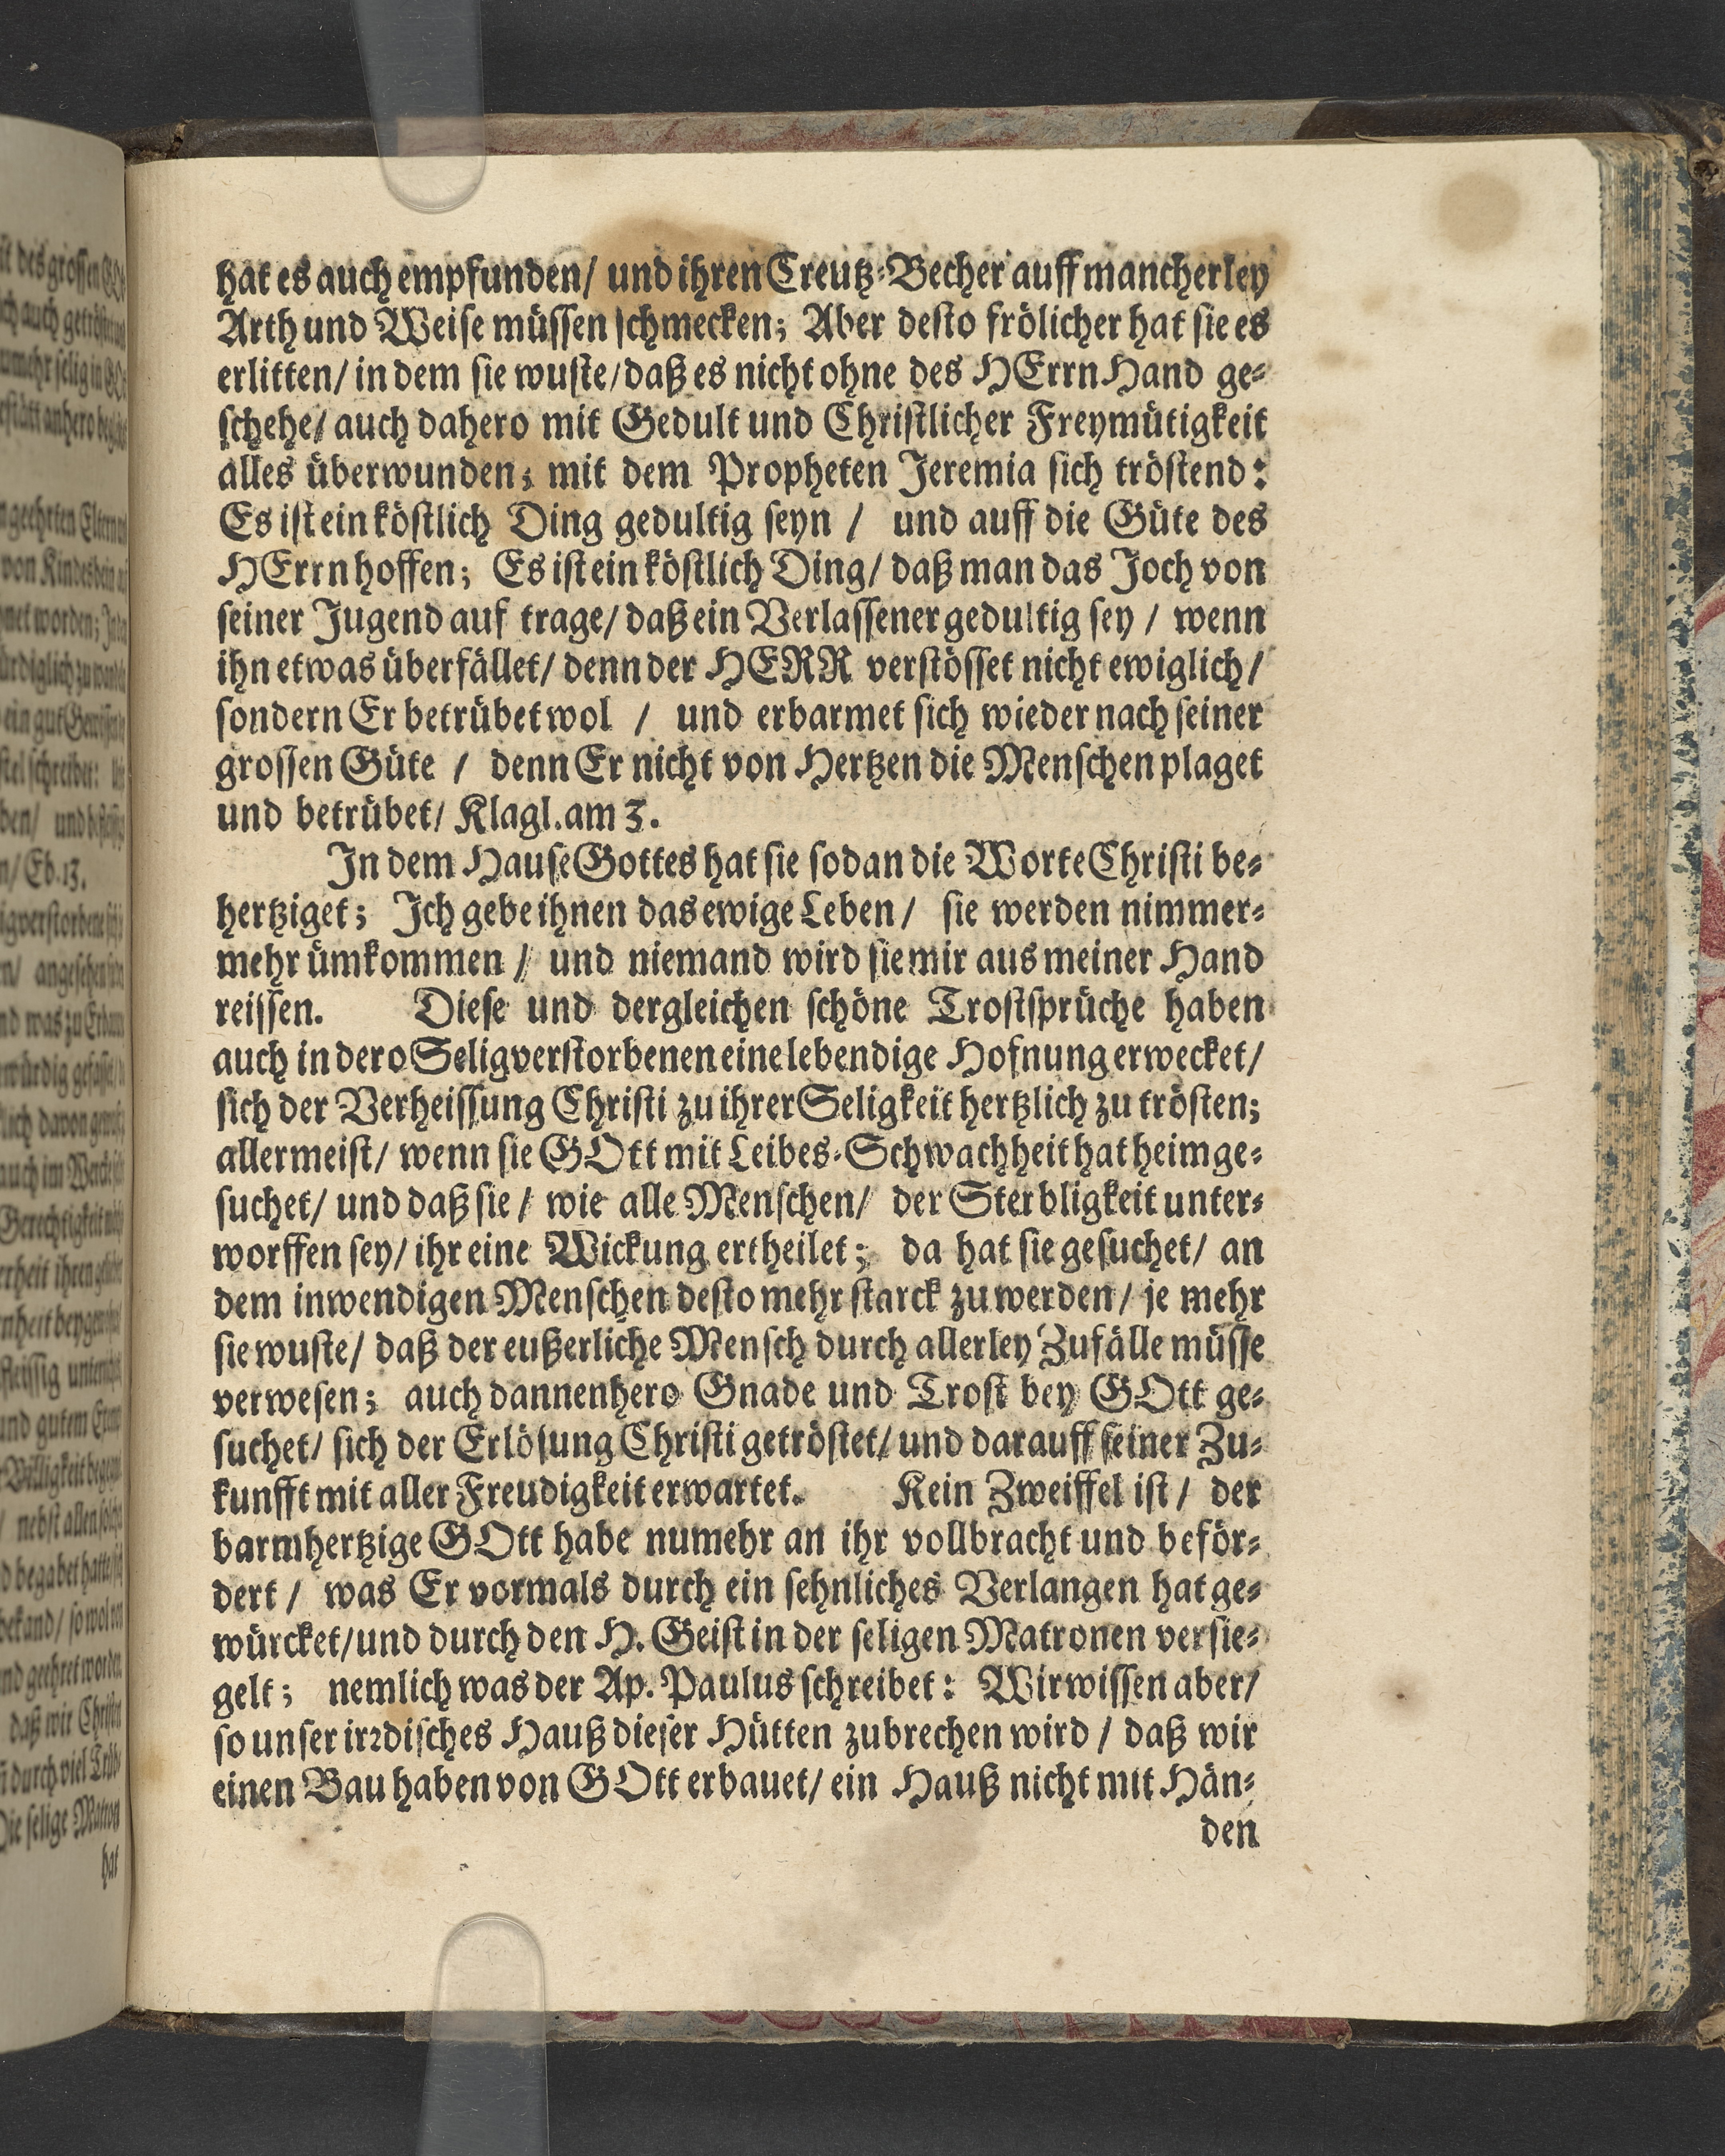 hat es auch empfunden/ und ihren Creutz-Becher auff mancherley
Arth und Weise müssen schmecken; Aber desto frölicher hat sie es
erlitten/ in dem sie wuste/ daß es nicht ohne des HErrn Hand ge-
schehe/ auch dahero mit Gedult und Christlicher Freymütigkeit
alles überwunden; mit dem Propheten Jeremia sich tröstend:
Es ist ein köstlich Ding gedultig seyn / und auff die Güte des
HErrn hoffen; Es ist ein köstlich Ding/ daß man das Joch von
seiner Jugend auf trage/ daß ein Verlassener gedultig sey / wenn
ihn etwas überfället/ denn der HERR verstösset nicht ewiglich/
sondern Er betrübet wol / und erbarmet sich wieder nach seiner
grossen Güte / denn Er nicht von Hertzen die Menschen plaget
und betrübet/ Klagl. am 3.
In dem Hause Gottes hat sie sodan die Worte Christi be-
hertziget; Ich gebe ihnen das ewige Leben/ sie werden nimmer-
mehr ümkommen / und niemand wird sie mir aus meiner Hand
reissen. Diese und dergleichen schöne Trostsprüche haben
auch in dero Seligverstorbenen eine lebendige Hofnung erwecket/
sich der Verheissung Christi zu ihrer Seligkeit hertzlich zu trösten;
allermeist/ wenn sie GOtt mit Leibes-Schwachheit hat heimge-
suchet/ und daß sie / wie alle Menschen/ der Sterbligkeit unter-
worffen sey/ ihr eine Wickung ertheilet; da hat sie gesuchet/ an
dem inwendigen Menschen desto mehr starck zu werden/ je mehr
sie wuste/ daß der eußerliche Mensch durch allerley Zufälle müsse
verwesen; auch dannenhero Gnade und Trost bey GOtt ge-
suchet/ sich der Erlösung Christi getröstet/ und darauff seiner Zu-
kunfft mit aller Freudigkeit erwartet. Kein Zweiffel ist / der
barmhertzige GOtt habe numehr an ihr vollbracht und beför-
dert / was Er vormals durch ein sehnliches Verlangen hat ge-
würcket/ und durch den H. Geist in der seligen Matronen versie-
gelt; nemlich was der Ap. Paulus schreibet: Wir wissen aber/
so unser irrdisches Hauß dieser Hütten zubrechen wird / daß wir
einen Bau haben von GOtt erbauet/ ein Hauß nicht mit Hän-
den